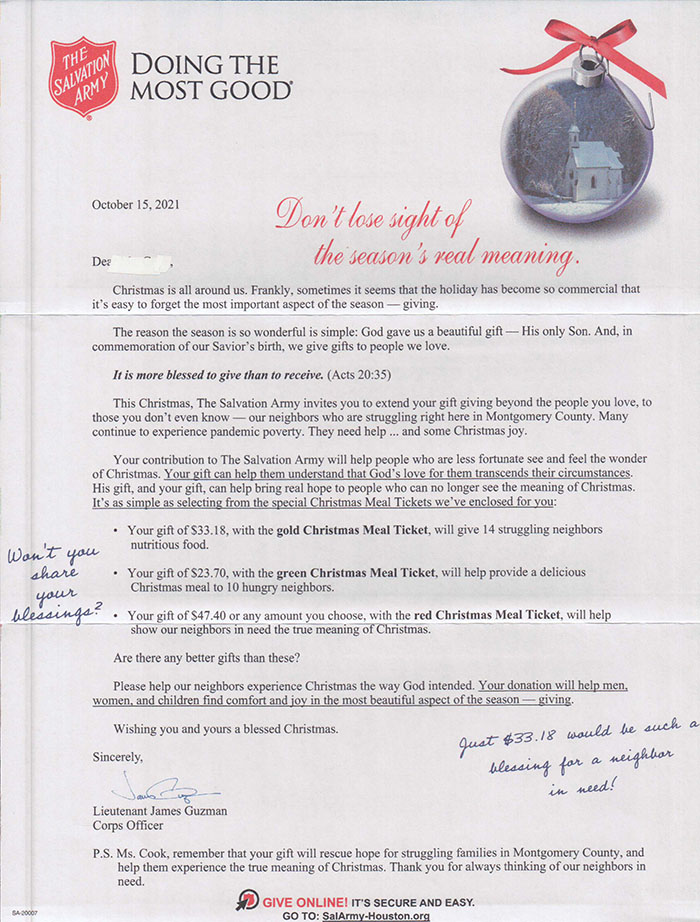 THE
SALVATION
ARMY
DOING THE
MOST GOOD®
October 15, 2021
Don't lose sight of
the season's real meaning.
Dea ,
Christmas is all around us. Frankly, sometimes it seems that the holiday has become so commercial that
it's easy to forget the most important aspect of the season — giving.
The reason the season is so wonderful is simple: God gave us a beautiful gift — His only Son. And, in
commemoration of our Savior's birth, we give gifts to people we love.
It is more blessed to give than to receive. (Acts 20:35)
This Christmas, The Salvation Army invites you to extend your gift giving beyond the people you love, to
those you don't even know — our neighbors who are struggling right here in Montgomery County. Many
continue to experience pandemic poverty. They need help ... and some Christmas joy.
Your contribution to The Salvation Army will help people who are less fortunate see and feel the wonder
of Christmas. Your gift can help them understand that God's love for them transcends their circumstances.
His gift, and your gift, can help bring real hope to people who can no longer see the meaning of Christmas.
It's as simple as selecting from the special Christmas Meal Tickets we've enclosed for you:
• Your gift of $33.18, with the gold Christmas Meal Ticket, will give 14 struggling neighbors
nutritious food.
• Your gift of $23.70, with the green Christmas Meal Ticket, will help provide a delicious
Christmas meal to 10 hungry neighbors.
• Your gift of $47.40 or any amount you choose, with the red Christmas Meal Ticket, will help
show our neighbors in need the true meaning of Christmas.
Won't you
share
your
blessings?
Are there any better gifts than these?
Please help our neighbors experience Christmas the way God intended. Your donation will help men,
women, and children find comfort and joy in the most beautiful aspect of the season — giving.
Wishing you and yours a blessed Christmas.
Just $33.18 would be such a
blessing for a neighbor
in need!
Sincerely,
Lieutenant James Guzman
Corps Officer
P.S. Ms. Cook, remember that your gift will rescue hope for struggling families in Montgomery County, and
help them experience the true meaning of Christmas. Thank you for always thinking of our neighbors in
need.
SA-20007
GIVE ONLINE! IT'S SECURE AND EASY.
GO TO: SalArmy-Houston.org